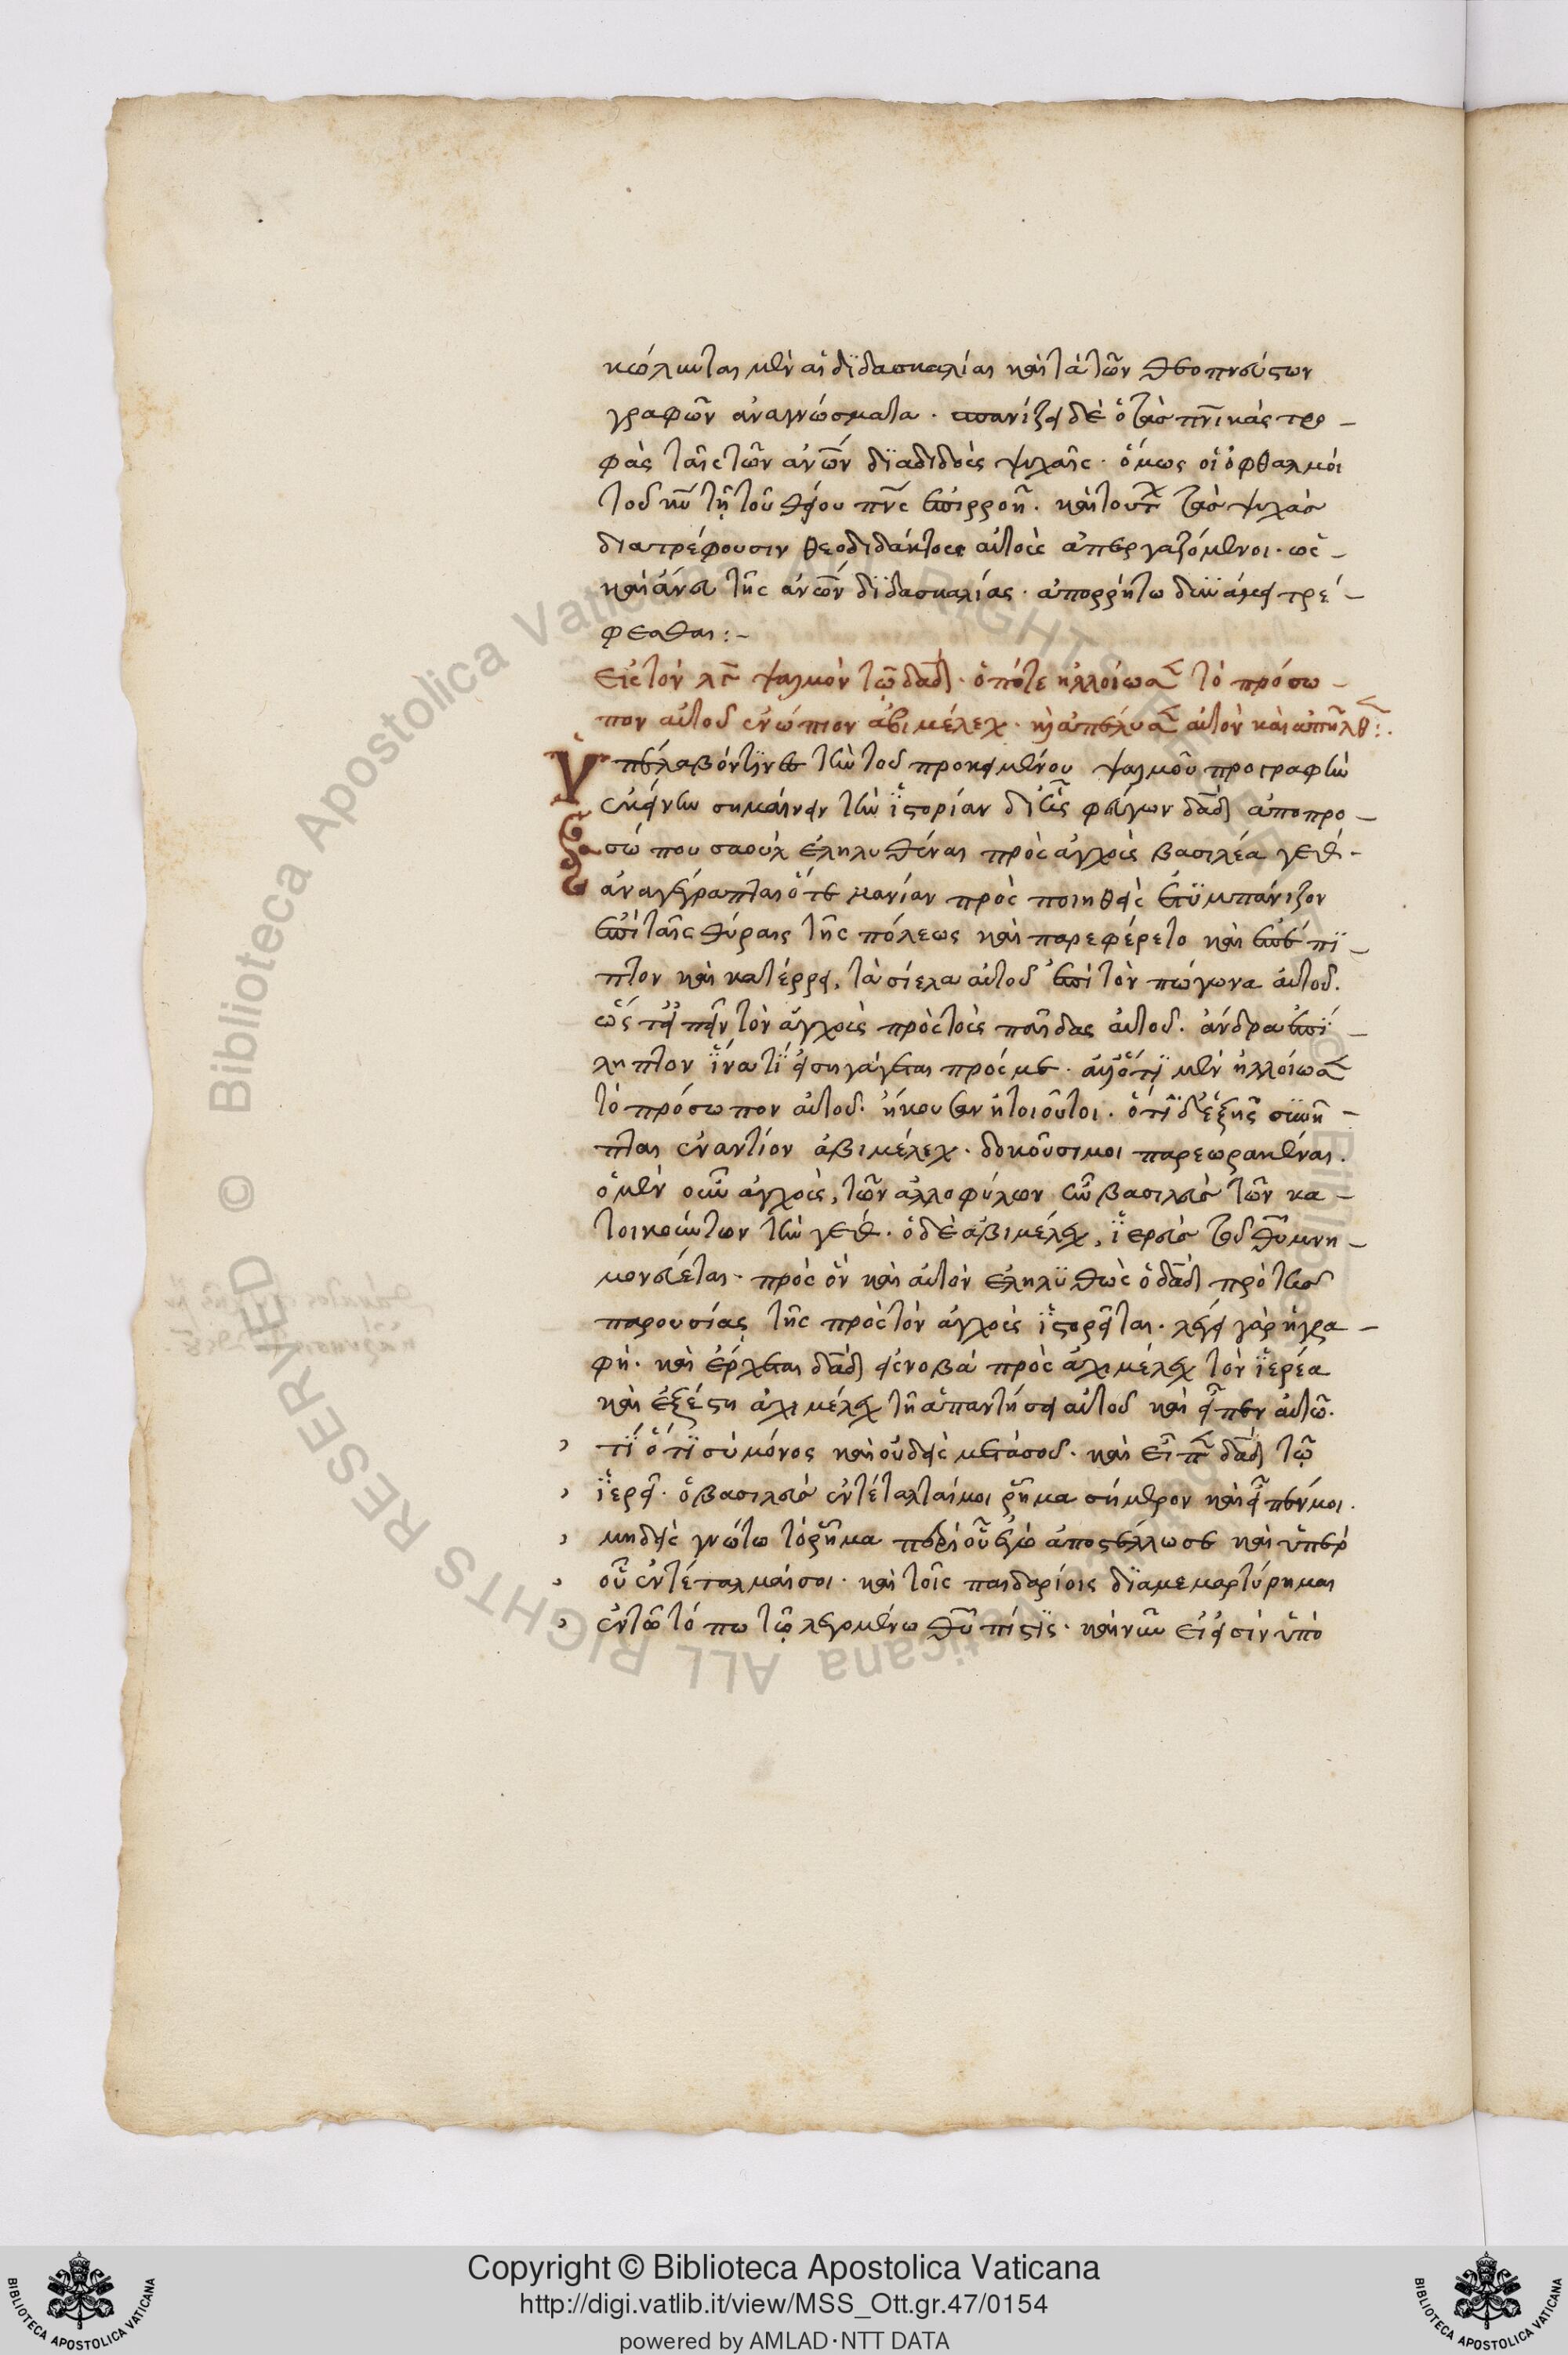 κώλυνται μὲν αἱ διδασκαλίαι καὶ τὰ τῶν θεοπνεύστων
γραφῶν ἀναγνώσματα. σπανίζει δὲ ὁ τὰς πνικὰς τρο-
φὰς ταῖς τῶν ἀνῶν διαδιδοὺς ψυχαῖς. ὅμως οἱ ὀφθαλμοὶ
τοῦ κυ τῇ τοῦ θείου πνς ἐπιρροῇ. καὶ τούτων τὰς ψυχὰς
διατρέφουσιν θεοδιδάκτους αὐτοὺς ἀπεργαζόμενοι. ὡς
καὶ ἄνευ τῆς ἀνῶν διδασκαλίας. ἀπορρήτω δυνάμει τρέ-
φεσθαι:-
εἰς τὸν λγ ψαλμὸν τῷ δαδ. ὁπότε ἠλλοίωσε τὸ πρόσω-
πον αὐτοῦ ἐνώπιον ἀβιμέλεχ. καὶ ἀπέλυσεν αὐτὸν καὶ ἀπῆλθεν:.
Ὑπέλαβόν τινες τὴν τοῦ προκειμένου ψαλμοῦ προγραφὴν
ἐκείνην σημαίνειν τὴν ἱστορίαν δι' ἧς φεύγων δαδ ἀπὸ προ-
σώπου σαοὺλ ἐληλυθέναι πρὸς ἀγχοὺς βασιλέα γέθ.
ἀναγέγραπται ὅτε μανίαν προσποιηθεὶς ἐτυμπάνιζον
ἐπὶ ταῖς θύραις τῆς πόλεως καὶ παρεφέρετο καὶ ἔπι-
πτον καὶ κατέρρει, τὰ σίελα αὐτοῦ ἐπὶ τὸν πώγωνα αὐτοῦ.
ὥς τε εἰπεῖν τὸν ἀγχοὺς πρὸς τοὺς παῖδας αὐτοῦ. ἄνδρα ἐπί-
ληπτον ἵνα τί εἰσηγάγεται πρός με. ἀλλ' ὅτι μὲν ἠλλοίωσε
τὸ πρόσωπον αὐτοῦ. ἤκουεν ἡ τοιοῦτοι. ὅτι δ' ἑξῆς συνῆ-
πται ἐναντίον ἀβιμέλεχ. δοκοῦσί μοι παρεωρακέναι.
ὁ μὲν οὖν ἀγχοὺς, τῶν ἀλλοφύλων ἦν βασιλεὺς τῶν κα-
τοικούντων τὴν γέθ. ὁ δὲ ἀβιμέλεχ, ἱερεὺς τοῦ θυ μνη-
μονεύεται. πρὸς ὃν καὶ αὐτὸν ἐληλυθὼς ὁ δαδ πρὸ τῆς
παρουσίας τῆς πρὸς τὸν ἀγχοὺς ἱστορεῖται. λέγει γὰρ ἡ γρα-
φή. καὶ ἔρχεται δαδ εἰς νοβὰ πρὸς ἀχιμέλεχ τὸν ἱερέα
καὶ ἐξέστη ἀχιμέλεχ τῇ ἀπαντήσει αὐτοῦ καὶ εἶπεν αὐτῷ.
τί ὅτι σὺ μόνος καὶ οὐδεὶς μετὰ σοῦ. καὶ εἶπε δαδ τῷ
ἱερεῖ. ὁ βασιλεὺς ἐντέταλταί μοι ῥῆμα σήμερον καὶ εἶπέν μοι.
μηδεὶς γνώτω τὸ ῥῆμα περὶ οὗ ἐγὼ ἀποστέλλω σε καὶ ὑπὲρ
οὗ ἐντέταλμαί σοι. καὶ τοῖς παιδαρίοις διαμεμαρτύρημαι
ἐν τῷ τόπω τῷ λεγομένω θυ πίστις. καὶ νῦν εἰ εἰσὶν ὑπὸ
Copyright © Biblioteca Apostolica Vaticana
http://digi.vatlib.it/view/MSS_Ott.gr.47/0154
powered by AMLAD·NTT DATA